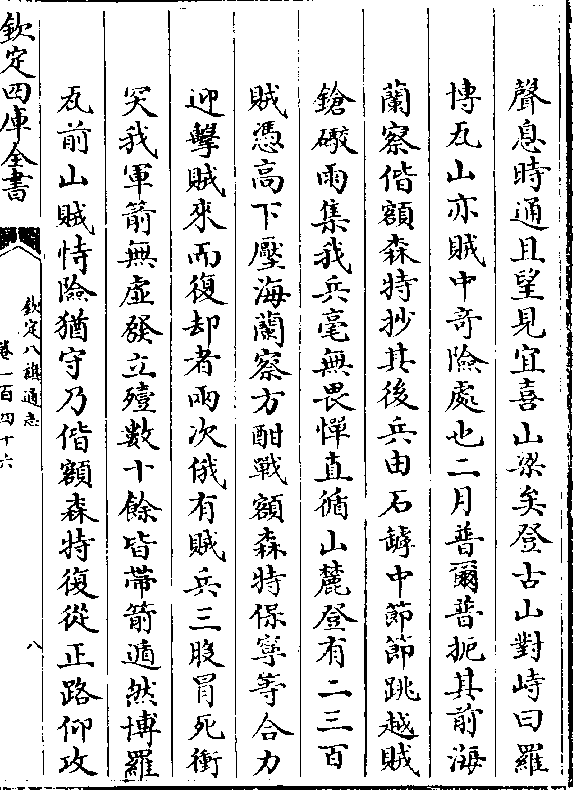 聲息時通且望見宜喜山梁矣登古山對峙曰羅
博瓦山亦賊中奇險處也二月普爾普扼其前海
蘭察偕額森特抄其後兵由石罅中節節跳越賊
鎗礮雨集我兵毫無畏憚直循山麓登有二三百
賊憑高下壓海蘭察方酣戰額森特保寧等合力
迎擊賊來而復却者兩次俄有賊兵三股冒死衝
突我軍箭無虛發立殪數十餘皆帶箭遁然博羅
瓦前山賊恃險猶守乃偕額森特復從正路仰攻
欽定四庫全書
欽定八旗通志
卷一百四十六
八